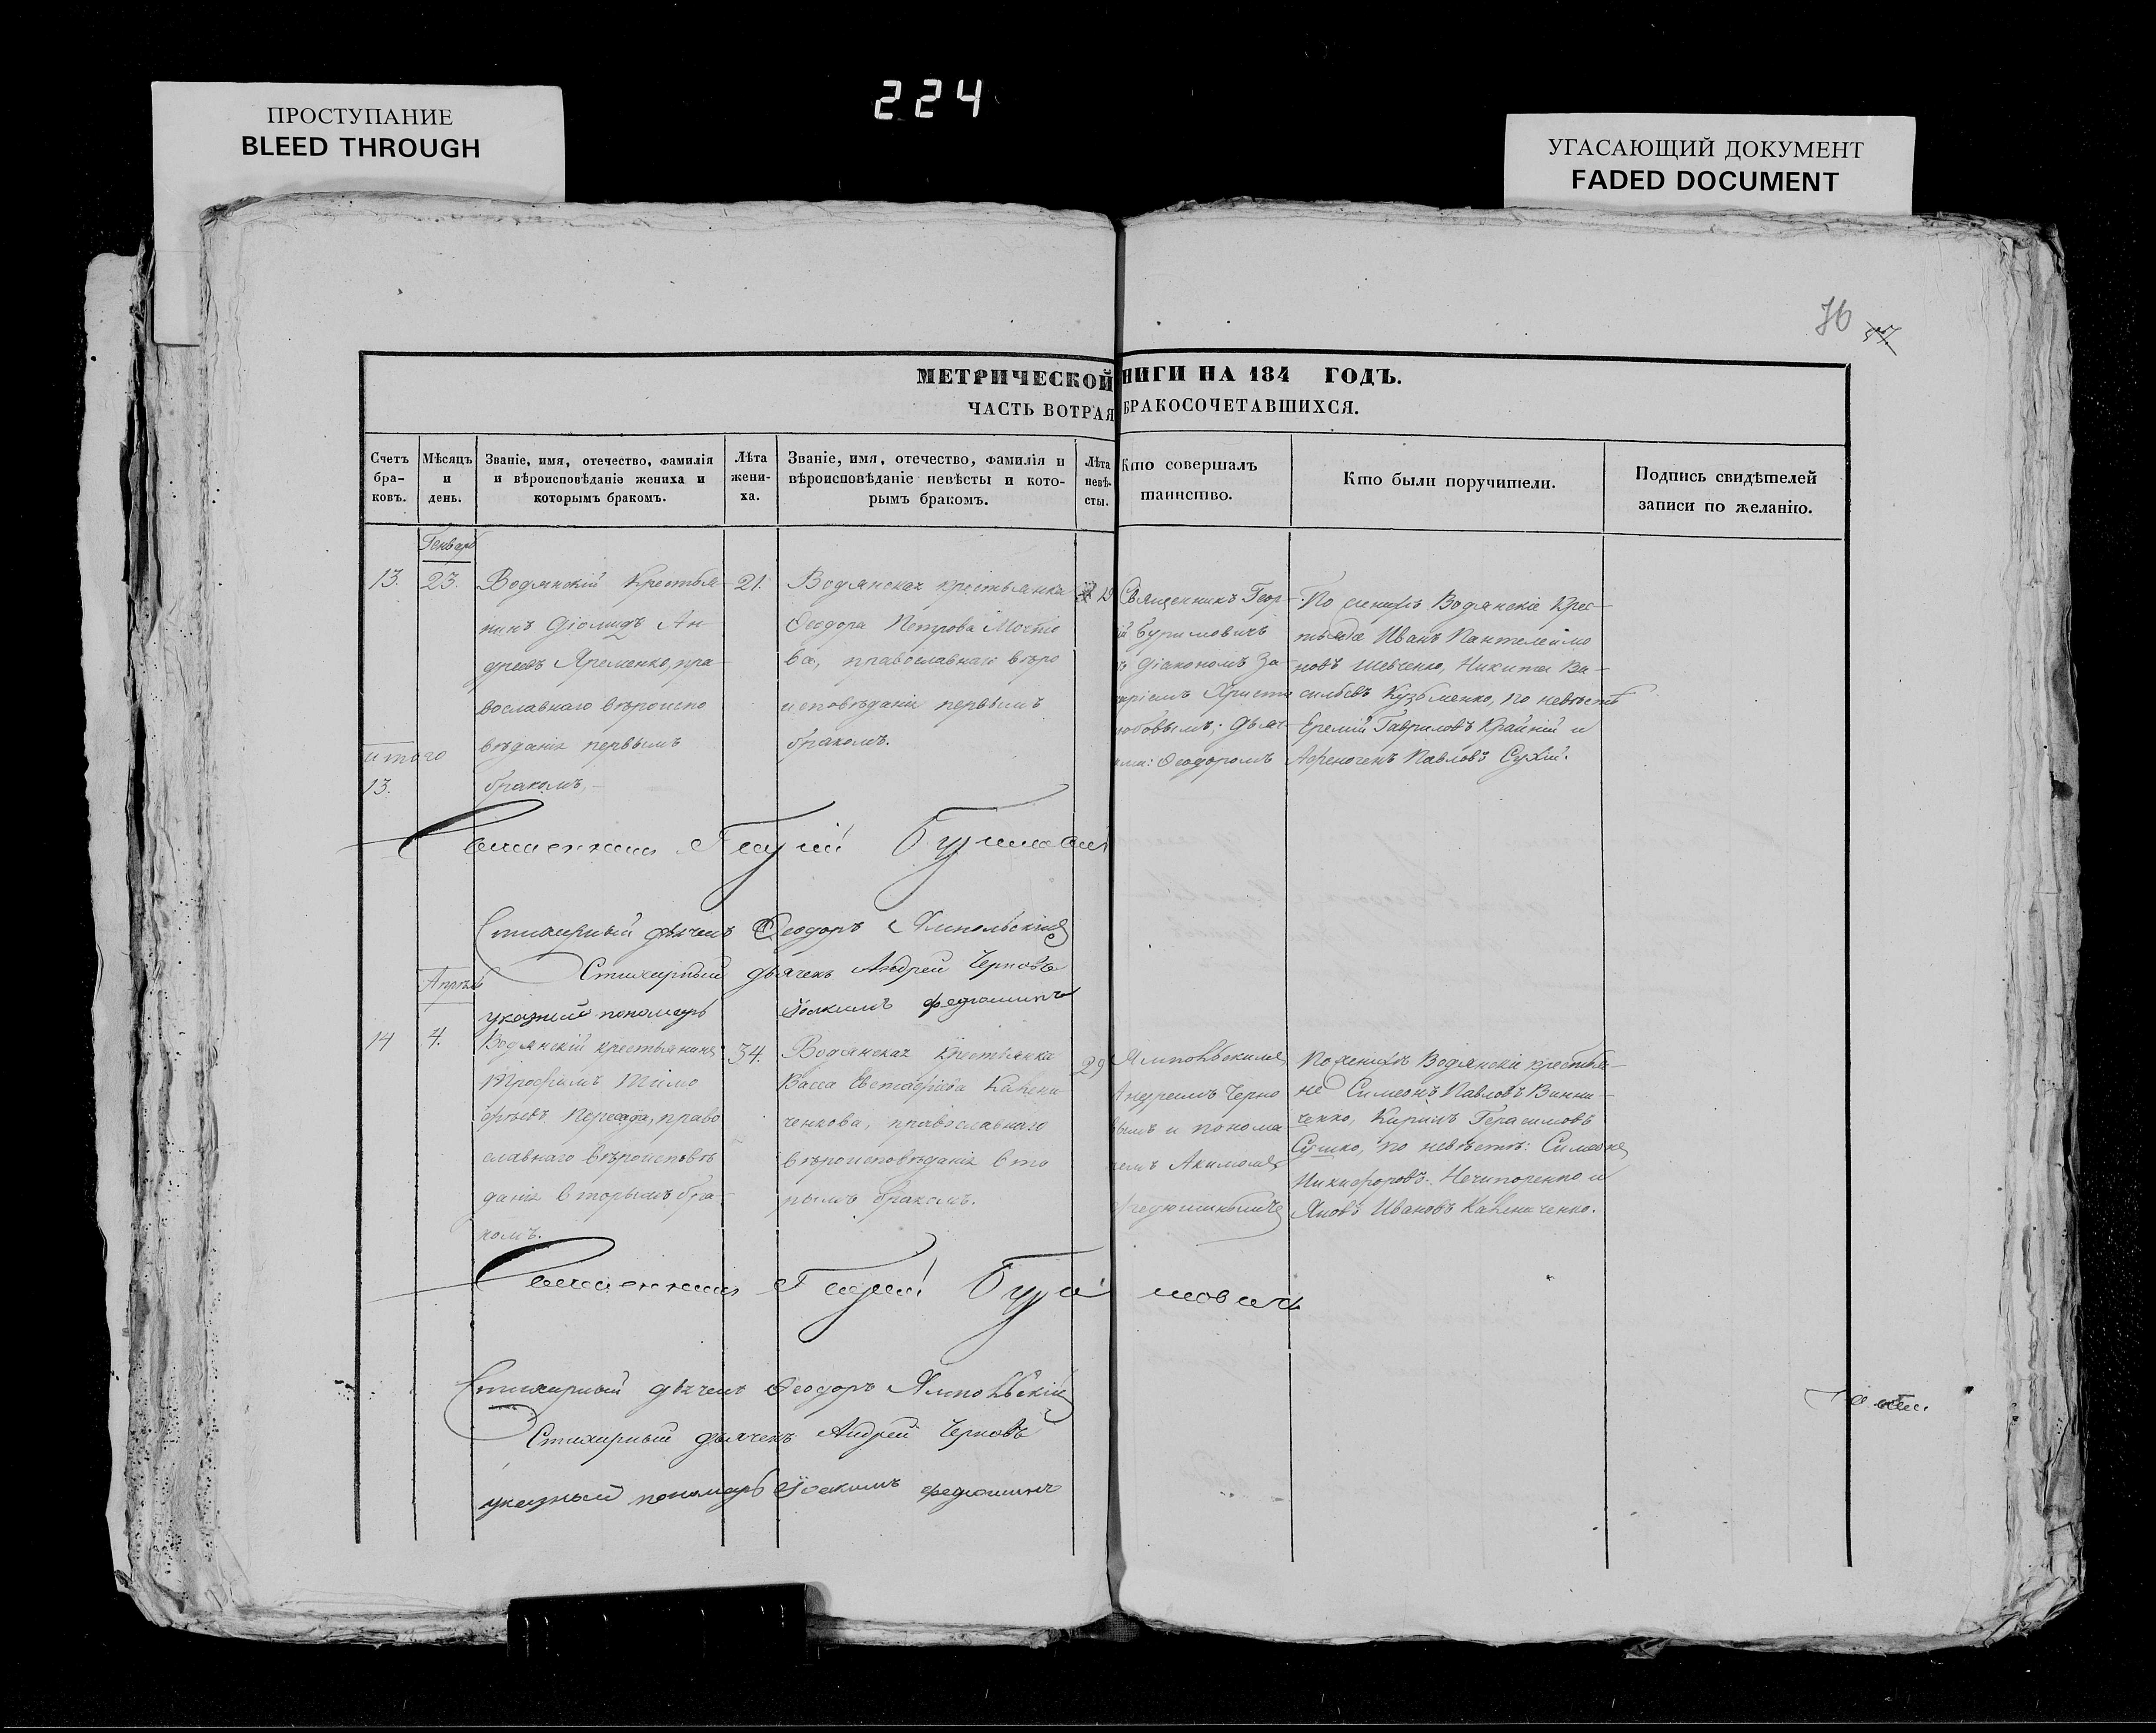 ПРОСТУПАНИЕ
BLEED THROUGH
224
УГАСАЮЩИЙ ДОКУМЕНТ
FADED DOCUMENT
76
МЕТРИЧЕСКОЙ НИГИ НА 184 ГОДЪ.
ЧАСТЬ ВОТРАЯ БРАКОСОЧЕТАВШИХСЯ.
Счетъ бра-ковъ.
Мѣсяцъ и день.
Званіе, имя, отечество, фамилія
и вѣроисповѣданіе жениха и
которымъ бракомъ.
Лѣта жени-ха.
Званіе, имя, отечество, фамилія и
вѣроисповѣданіе невѣсты и кото-
рымъ бракомъ.
Лѣта невѣ-сты.
Кто совершалъ
таинство.
Кто были поручители.
Подпись свидѣтелей
записи по желанію.
Генварь
13.
23.
Водянскій Крестья-
нинъ Діомидъ Ан-
дреевъ Яременко, пра-
вославнаго вѣроиспо
вѣданія первымъ
бракомъ,
21.
Водянская крестьянка
Ѳеодора Петрова
ва, православнаго вѣро
исповѣданія первымъ
бракомъ.
19
Священникъ Геор-
ій Буримовичъ
діакономъ За-
харіемъ Христо
любовымъ; дьяч-
ками: Ѳеодоромъ
По женихѣ Водянскіе Крес-
тьяне Иванъ Пантелеймо
новъ Шевченко, Никита Ва-
сильевъ Кузьменко, по невѣстѣ
Еремій Гавриловъ Крайній и
Павловъ Сухій.
итого
13.
Священникъ Георгій Буримовичъ
Стихарный дьячекъ Ѳеодоръ Ямпольскій
Стихарный дьячекъ Андрей Черновъ
указный пономарь Іоакимъ Федюшинъ
Апрѣль
14
4.
Водянскій крестьянинъ
Трофимъ Тимо
фѣевъ Пересада, право
славнаго вѣроисповѣ
данія вторымъ бра-
комъ.
34.
Водянская крестьянка
Васса Евстафіева
ченкова, православнаго
вѣроисповѣданія вто
рымъ бракомъ.
29
Ямпольскимъ,
Андреемъ Черно
вымъ и понома
ремъ Акимомъ
По женихѣ Водянскіе крестья-
не Симеонъ Павловъ Винни-
ченко, Кирилъ Герасимовъ
Сушко, по невѣстѣ: Симеонъ
Никифоровъ Нечипоренко и
Яковъ Ивановъ
Священникъ Георгій Буримовичъ
Стихарный дьячекъ Ѳеодоръ Ямпольскій
Стихарный дьячекъ Андрей Черновъ
указный пономарь Іоакимъ Федюшинъ